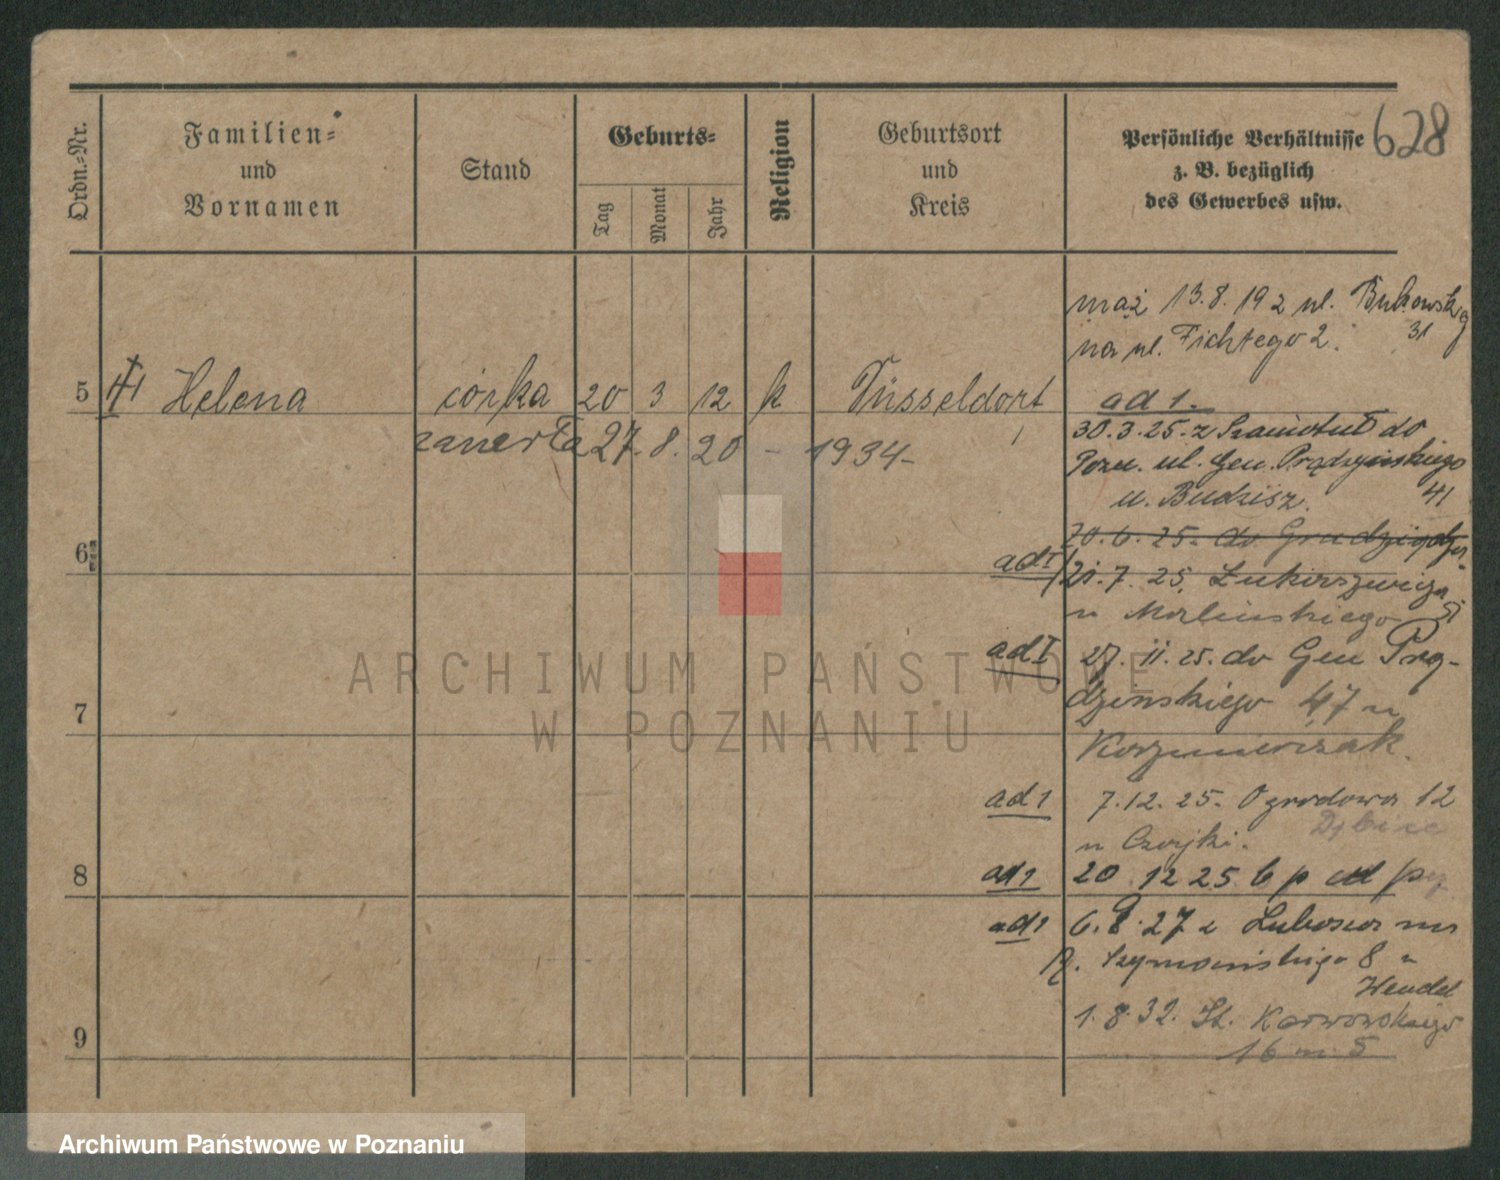 628
Ordn.=Nr.
Familien=
und
Vornamen
Stand
Geburts=
Tag
Monat
Jahr
Religion
Geburtsort
und
Kreis
Persönliche Verhältnisse
z. B. bezüglich
des Gewerbes usw.
mąż 13.8.19 z ul. Bukowskiej
31
na ul. Fichtego 2.
5 Helena córka 20 3 12 k Düsseldorf
ad 1.
zamarła 27.8.20 - 1934-
30.3.25. z Szamotuł do
Pozn. ul. Gen. Prądzyńskiego
41
u. Budzisz.
20.6.25. do
6
ad I 21.7.25.
51
ad I 27.11.25. do Gen Prą-
dzińskiego 47 u
7
ad 1 7.12.25. Ogrodowa 12
u
8
ad 1 20 12 25
ad 1 6.9.27 z
Szymańskiego 8 u
Wendel
1.8.32. Karwowskiego
16 m. 5
9
ARCHIWUM PAŃSTWOWE
W POZNANIU
Archiwum Państwowe w Poznaniu